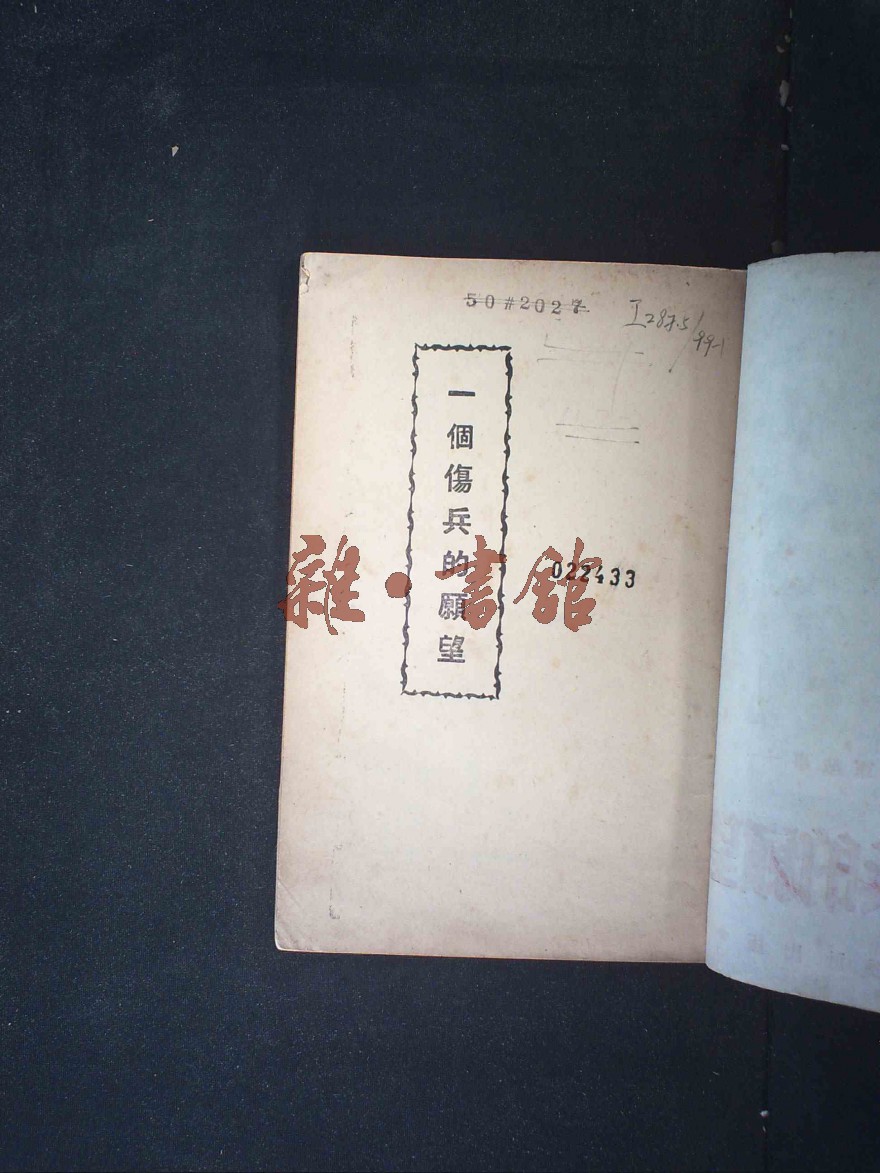 50#2027
I287.5/99-1
一個傷兵的願望
022433
雜·書館